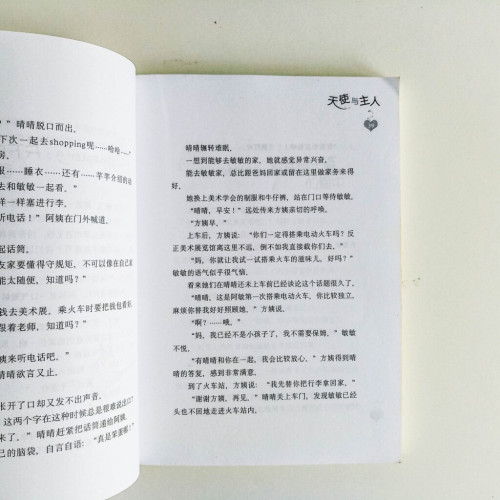 ？”晴晴脱口而出。
下次一起去shopping呢……哈哈……?”
房。
服……睡衣……还有……芊芊介绍的
去和敏敏一起看。”
样一样塞进行李。
听电话！”阿姨在门外喊道。
起话筒。
友家要懂得守规矩，不可以像在自己家
能太随便，知道吗？”
钱去美术展。乘火车时要把钱包看
跟着老师，知道吗？”
姨来听电话吧。”
晴晴欲言又止。
张开了口却又发不出声音。
这两个字在这种时候总是很难说出口
来了。”晴晴赶紧把话筒递给阿姨。
己的脑袋，自言自语：“真是呆蛋哪！”
天使与主人
晴晴辗转难眠。
一想到能够去敏敏的家，她就感觉异常兴奋。
能去敏敏家，总比跟爸妈回家或留在这里做家务来得
好。
她换上美术学会的制服和牛仔裤，站在门口等待敏敏。
“晴晴，早安！”远处传来方姨亲切的呼唤。
“方姨早。”
上车后，方姨说：“你们一定得搭乘电动火车吗？反
正美术展览馆离这里不远，倒不如我直接载你们去。”
“妈，你就让我试一试搭乘火车的滋味儿，好吗？”
敏敏的语气似乎很气恼。
看来她们在晴晴还未上车前已经谈论这个话题很久了。
“晴晴，这是阿敏第一次搭乘电动火车，你比较独立，
麻烦你替我好好照顾她。”方姨说。
“啊？……哦。”
“妈，我已经不是小孩子了，我不需要保姆。”敏敏
不悦。
“有晴晴和你在一起，我会比较放心。”方姨得到晴
晴的答复，感到非常满意。
到了火车站，方姨说：“我先替你把行李拿回家。”
“谢谢方姨，再见。”晴晴关上车门，发现敏敏已经
头也不回地走进火车站内。